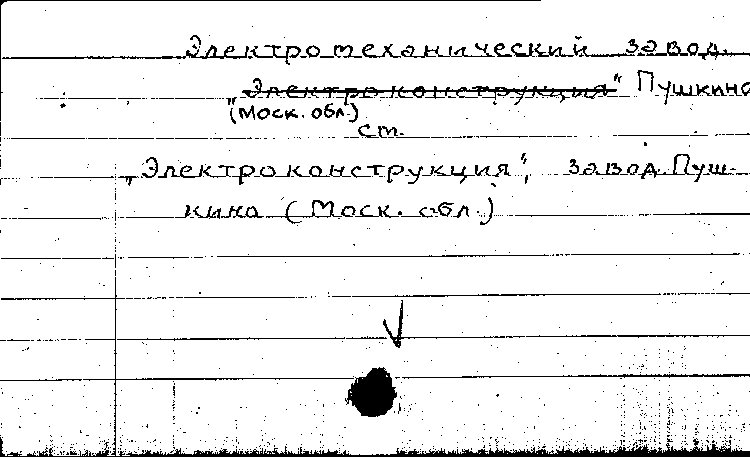 Электромеханический завод
"Электроконструкция" Пушкино
(Моск. обл.)
ст.
„Электроконструкция", завод. Пуш-
кино (Моск. обл.)